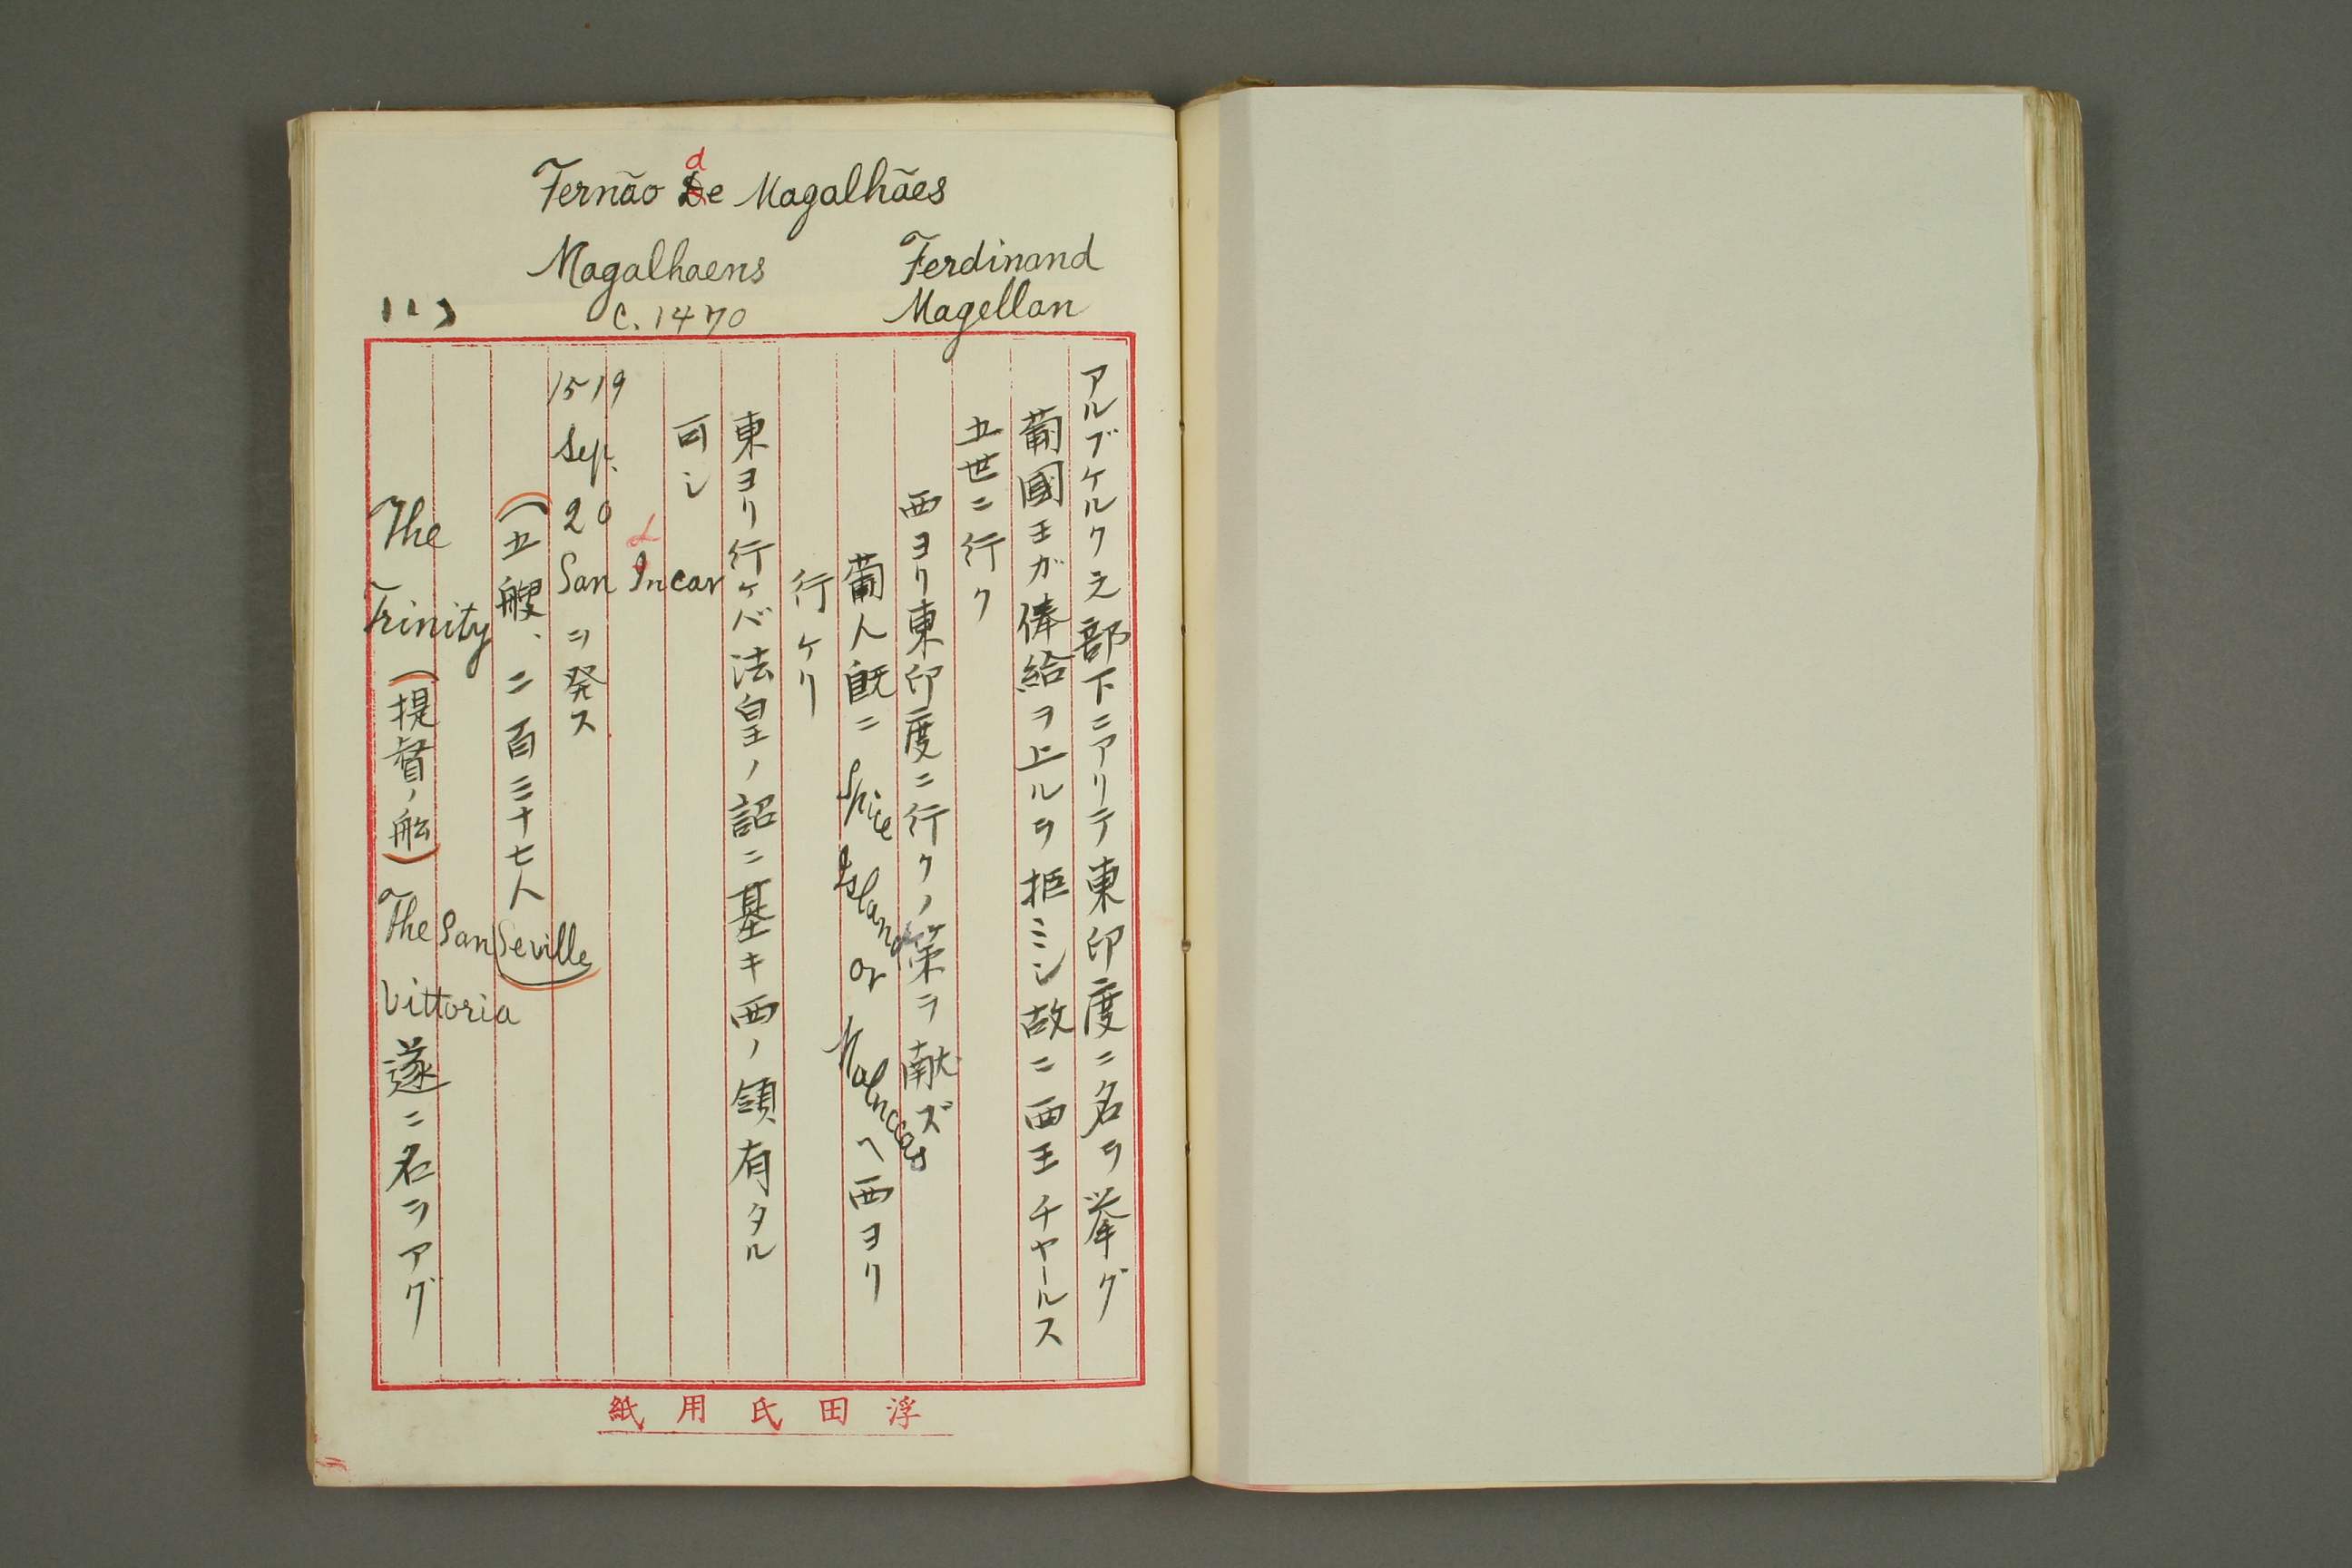 Fernão de Magalhães
Magalhaens
c. 1470
Ferdinand
Magellan
アルブケルク之部下ニアリテ東印度ニ名ヲ挙グ
葡國王ガ俸給ヲ上ルヲ拒ミシ故ニ西王チャールス
五世ニ行ク
西ヨリ東印度ニ行クノ策ヲ献ズ
葡人既ニ Spice Island or Moluccas ヘ西ヨリ
行ケリ
東ヨリ行ケバ法皇ノ詔ニ基キ西ノ領有タル
可シ
1519 Sep. 20 San Lucar ヲ発ス
(五艘、二百三十七人 Seville)
The Trinity (提督ノ舩) The San Vittoria 遂ニ名ヲアグ
浮田氏用紙